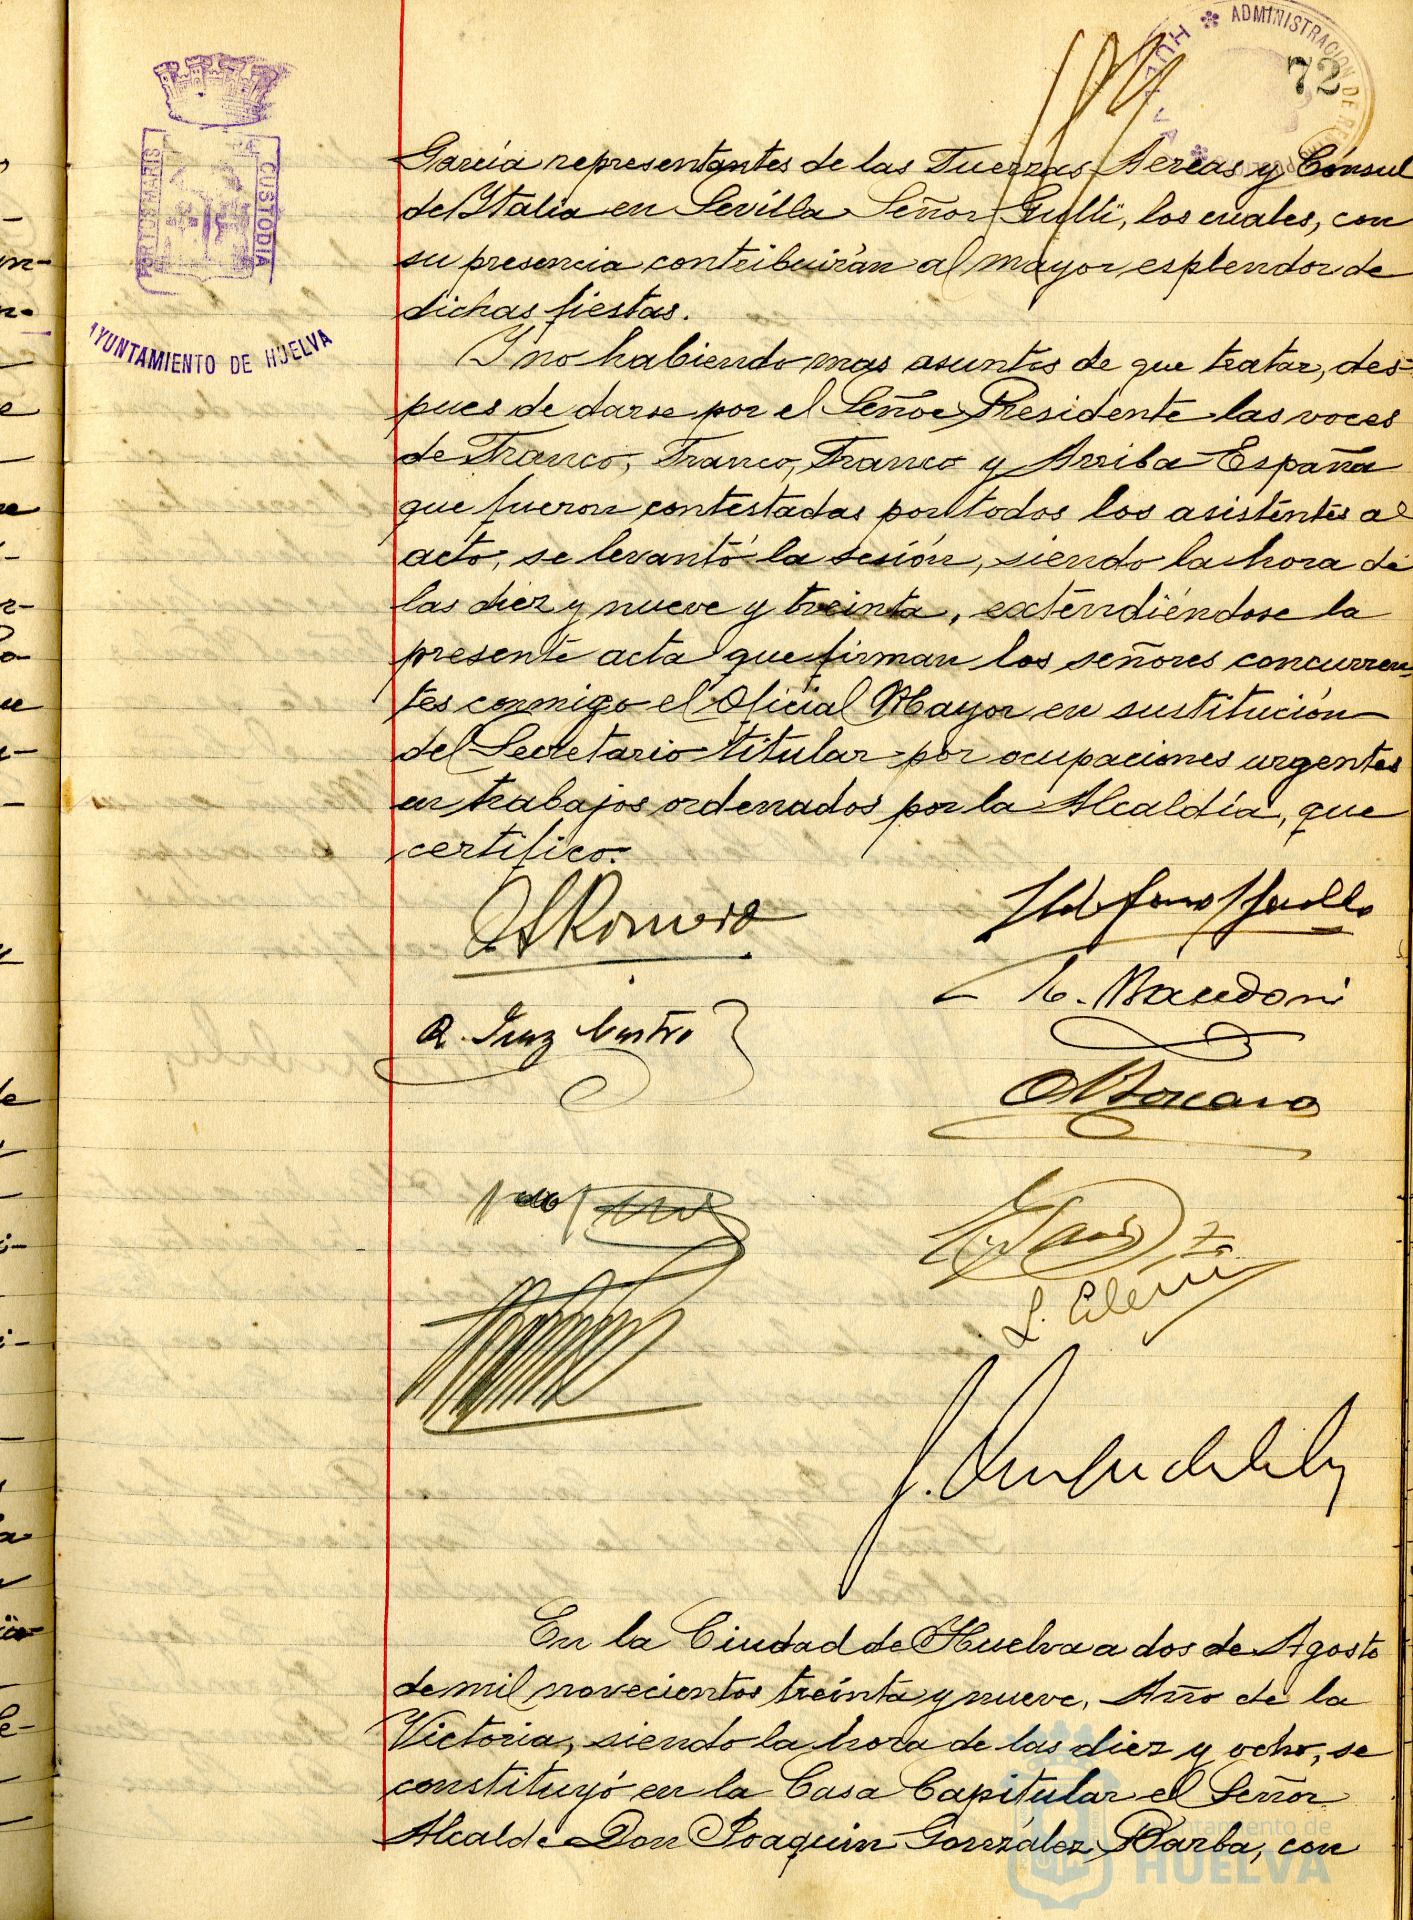 ADMINISTRACION DE
HUELVA
72
PORTUS MARIS
CUSTODIA
AYUNTAMIENTO DE HUELVA
García representantes de las Fuerzas Aereas y Cónsul
de Italia en Sevilla Señor Gulli, los cuales, con
su presencia contribuirán al mayor esplendor de
dichas fiestas.
Y no habiendo mas asuntos de que tratar, des-
pues de darse por el Señor Presidente las voces
de Franco, Franco, Franco y Arriba España
que fueron contestadas por todos los asistentes al
acto, se levantó la sesión, siendo la hora de
las diez y nueve y treinta, extendiéndose la
presente acta que firman los señores concurren-
tes conmigo el Oficial Mayor en sustitución
del Secretario titular por ocupaciones urgentes
en trabajos ordenados por la Alcaldía, que
certifico.
Romero
R. Diaz Castro
En la Ciudad de Huelva a dos de Agosto
de mil novecientos treinta y nueve, Año de la
Victoria, siendo la hora de las diez y ocho, se
constituyó en la Casa Capitular el Señor
Alcalde Don Joaquin González Barba, con
Ayuntamiento de
HUELVA